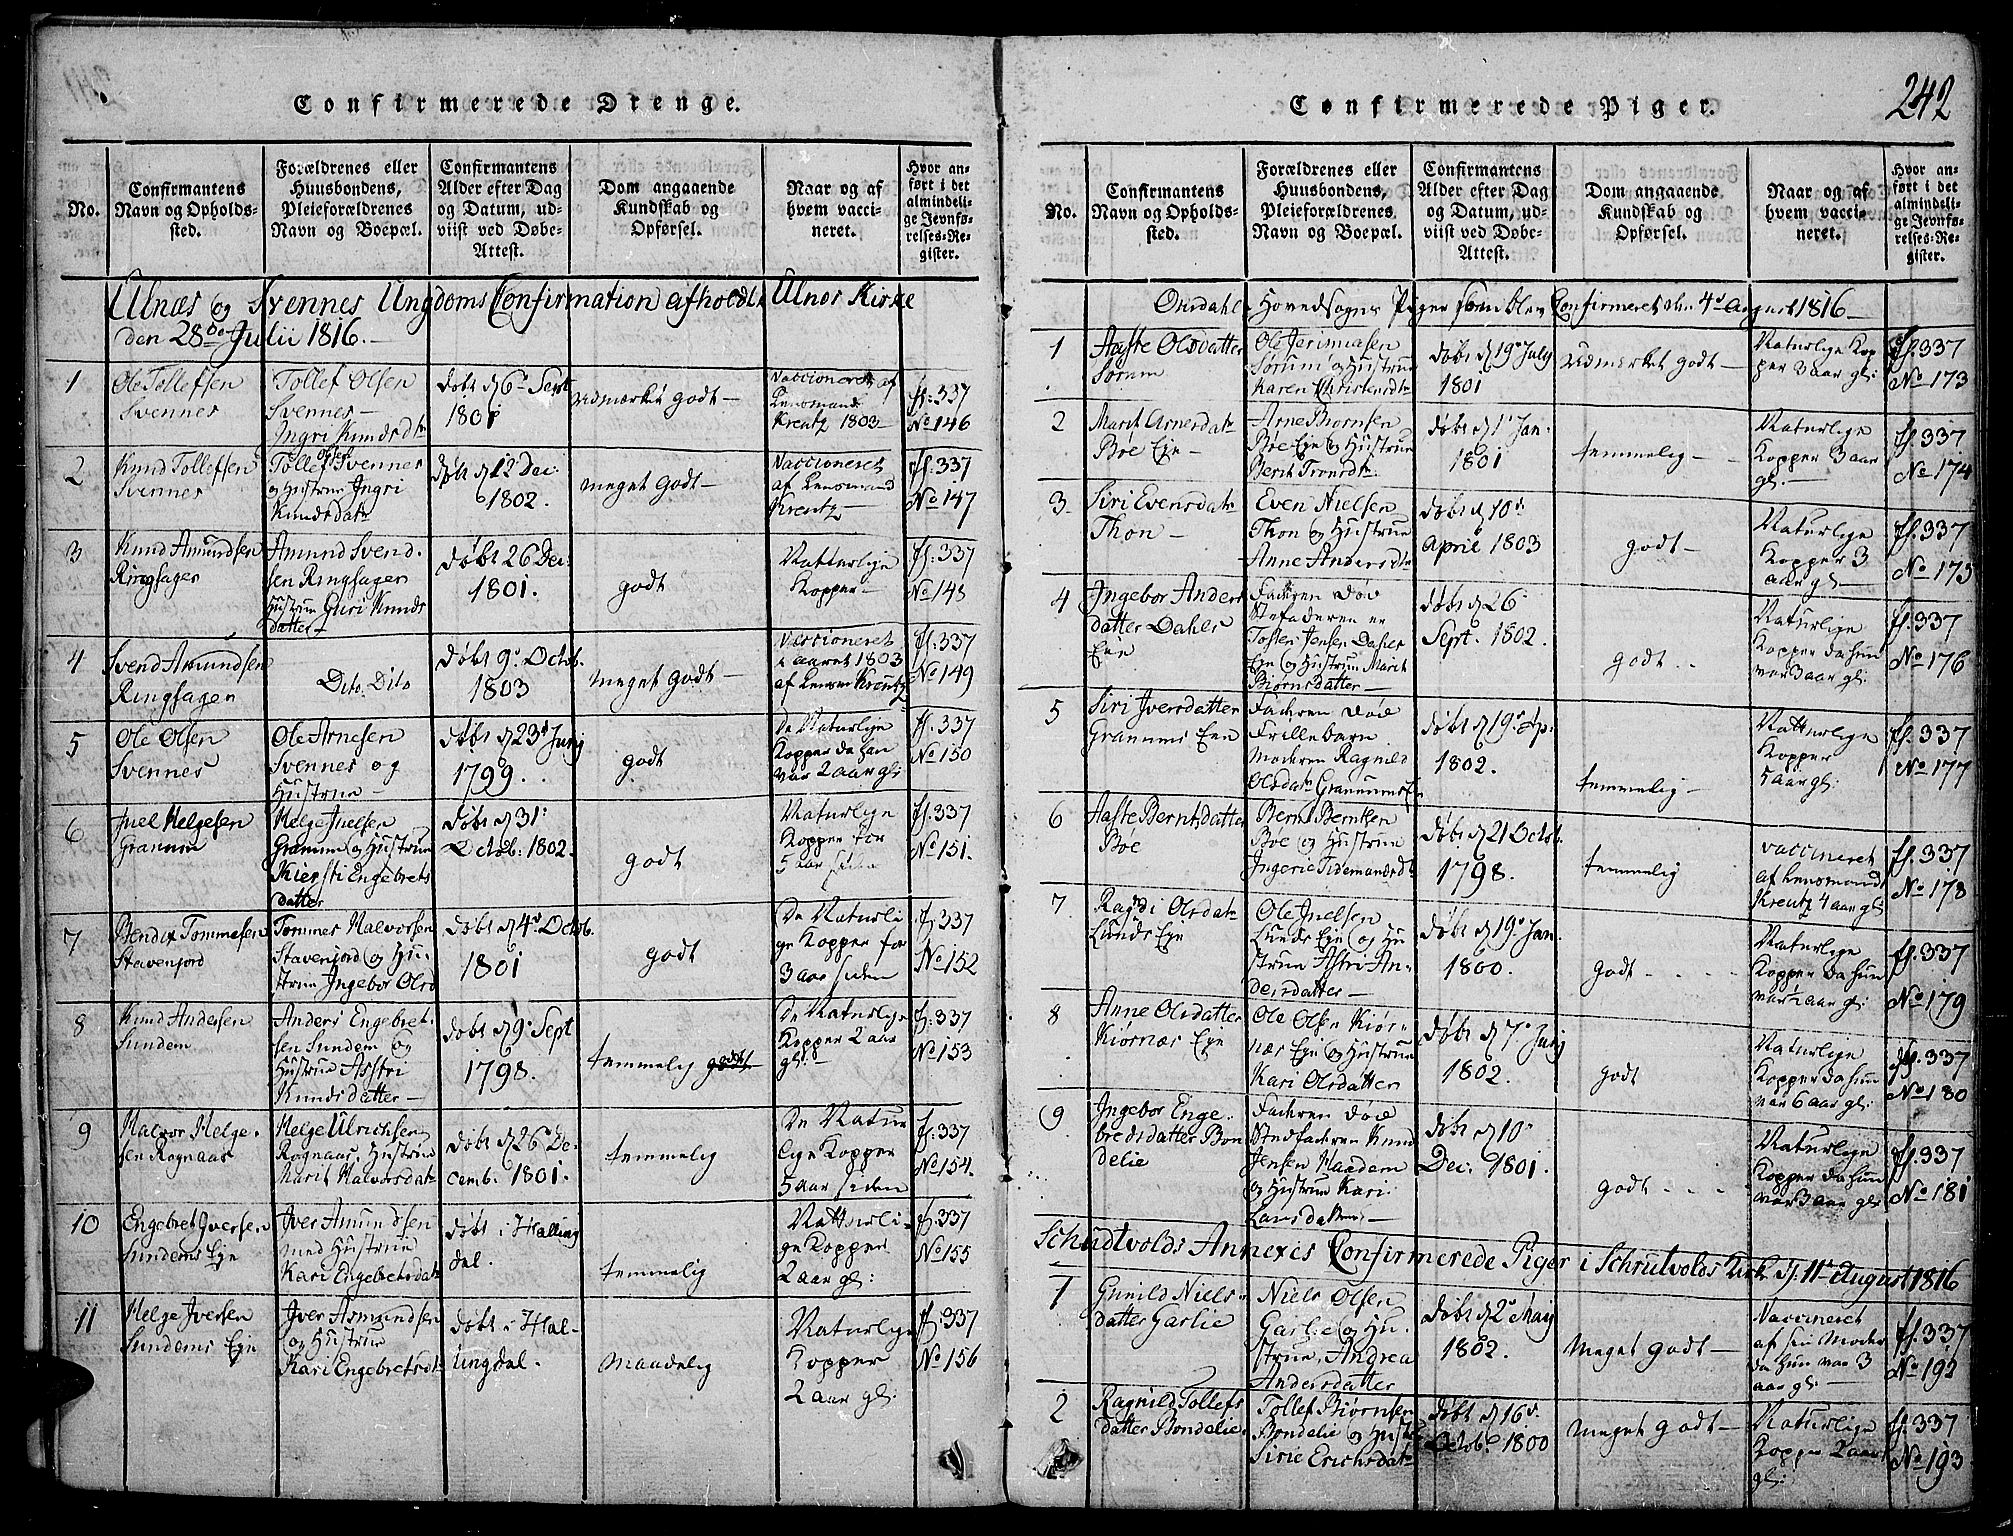 Confirmerede Drenge.
No.
Confirmantens
Navn og Opholds-
sted.
Forældrenes eller
Huusbondens,
Pleieforældrenes
Navn og Boepæl.
Confirmantens
Alder efter Dag
og Datum, ud-
viist ved Døbe-
Attest.
Dom angaaende
Kundskab og
Opførsel.
Naar og af
hvem vacci-
neret.
Hvor an-
ført i det
almindeli-
ge Jevnfø-
relses-Re-
gister.
Ulnæs og Svennes Ungdoms Confirmation afholdt i Ulnes Kirke
den 28de Julii 1816.
1
Ole Tollefsen
Svennes
Tollef Olsen
Svennes
Ingri Knudsdtr
døbt d. 6te Sept
1801
udmærket godt
Vaccioneret af
Lensmand
Kreutz 1803
fl: 337
No 146
2
Knud Tollefsen
Svennes
Tollef Olsen Svennes
og Hustrue Ingri
Knudsdatr
døbt d. 12 Dec:
1802.
meget godt
Vaccioneret
af Lensmand
Kreutz
fl: 337
No 147
3
Knud Amundsen
Ringsager
Amund Svend-
sen Ringsager
Hustrue Guri Knuds
datter
døbt 26 Dec:
1801.
godt
Naturlige
Kopper
fl: 337
No 148
4
Svend Amundsen
Ringsager
Dito. Dito
døbt 9de Octob.
1803
meget godt
Vaccioneret
i aaret 1803
af Lensm Kreutz
fl: 337
No 149
5
Ole Olsen
Svennes
Ole Arnesen
Svennes og
Hustrue
døbt d. 23de Junj
1799.
godt
De Naturlige
Kopper da han
var 2 aar gl:
fl: 337
No 150
6
Juel Helgesen
Granum
Helge Juelsen
Granum og Hustrue
Kiersti Engebrets
datter
døbt d. 31:
Octob: 1802.
godt
Naturlige
Kopper for
5 aar siden
fl: 337
No 151.
7
Bendix Tommesen
Stavenjord
Tommes Halvorsen
Stavenjord og Hu-
strue Ingebor Olsd
døbt d. 4de Octob.
1801
godt
De Naturli
ge Kopper for
3 aar siden
fl: 337
No 152
8
Knud Andersen
Sundem
Anders Engebret-
sen Sundem og
Hustrue Asstri
Knudsdatter
døbt d. 9de Sept
1798.
temmelig godt
De Naturlige
Kopper 2 aar
gl:
fl: 337
No 153
9
Halvor Helge-
sen Rognaas
Helge Ulrichsen
Rognaas, Hustrue
Marit Halvorsdatr
døbt d. 26 De-
cemb. 1801.
temmelig
De Natur
lige Kopper
5 aar siden
fl: 337
No 154.
10
Engebret Iversen
Sundems Eje
Iver Amundsen
med Hustrue
Kari Engebretsdatr
døbt i Halling
dal.
temmelig
Natturli-
ge Kopper
2 aar gl:
fl: 337
No 155
11
Helge Iversen
Sundems Eje
Iver Asmundsen
og Hustrue
Kari Engebretsdtr
døbt i Hal-
lingdal.
maadelig
Naturlige
Kopper
2 aar gl:
fl: 337
No 156
242
Confirmerede Piger.
No.
Confirmantens
Navn og Opholds-
sted.
Forældrenes eller
Huusbondens,
Pleieforældrenes
Navn og Boepæl.
Confirmantens
Alder efter Dag
og Datum, ud-
viist ved Døbe-
Attest.
Dom angaaende
Kundskab og
Opførsel.
Naar og af
hvem vacci-
neret.
Hvor an-
ført i det
almindeli-
ge Jevnfø-
relses-Re-
gister.
Ourdahls Hovedsogns Piger som blev Confirmeret den 4de August 1816
1
Aaste Olsdatter
Sørum
Ole Jerimiasen
Sørum og Hustrue
Karen Christensdtr
døbt d. 19de July
1801
udmerket godt
Naturlige Kop
per 3 aar gl:
fl: 337
No 173
2
Marit Arnesdatr
Bøe Eje
Arne Biørnsen
Bøe Eje og Hustrue
Berit Trondsdtr
døbt d. 1te Jan.
1801
temmelig
Naturlige
Kopper 3 aar
gl:
fl: 337
No 174
3
Siri Evensdatr
Thon
Even Nielsen
Thon og Hustrue
Anne Andersdtr
døbt d. 10de
April 1803
godt
Naturlige
Kopper 3
aar gl:
fl: 337
No 175
4
Ingebor Anders
datter Dahls
Eje
Faderen død
Stefaderen er
Tosten Jensen Dahls
Eje og Hustrue Marit
Biørnsdatter
døbt d. 26
Sept. 1802.
godt
Naturlige
Kopper da hun
var 3 aar gl:
fl: 337
No 176
5
Siri Iversdatter
Granums Eje
Faderen død
Frillebarn
Moderen Ragnild
Olsdatr Granums E
døbt d. 19de Ap.
1802.
temmelig
Natturlige
Kopper
5 aar gl:
fl: 337
No 177
6
Aaste Berntsdatter
Bøe
Bernt Berntsen
Bøe og Hustrue
Ingerie Tidemandsdtr
døbt d. 21 Octob.
1798.
temmelig
vaccineret
af Lensmand
Kreutz 4 aar gl:
fl: 337
No 178
7
Ragndi Olsdatr
Lunds Eje
Ole Juelsen
Lunds Eje og Hu
strue Astri An-
dersdatter
døbt d. 19de Jan.
1800.
godt
Naturlige
Kopper da hun
var aar gl:
fl: 337
No 179
8
Anne Olsdatter
Kiørnæs Eje
Ole Olsen Kiør-
næs Eje og Hustrue
Kari Olsdatter
døbt d. 7de Junj
1802.
godt
Naturlige
Kopper da hun
var 6 aar gl:
fl: 337
No 180
9
Ingebor Enge-
bredsdatter Bon
delie
Faderen død
Stedfaderen Knud
Jensen Haadem
og Hustrue Kari
Larsdatter
døbt d. 10de
Dec: 1801.
godt
Naturlige
Kopper da hun
var 3 aar gl:
fl: 337
No 181
Schrudtvolds Annexes Confirmerede Piger i Schrutvolds Kirke d. 11te August 1816
1
Gunild Niels-
datter Garlie
Niels Olsen
Garlie og Hu-
strue, Andrea
Andersdatter
døbt d. 2de Maij
1802.
meget godt
Vaccineret
af sin Moder
da hun var 3
aar gl:
fl: 337
No 192
2
Ragnild Tollefs
datter Bondelie
Tollef Biørnsen
Bondelie og Hust
Sirie Erichsdatr
døbt d. 16de
Octob. 1800
meget godt
Naturlige
Kopper 2 aar
gl:
fl: 337
No 193